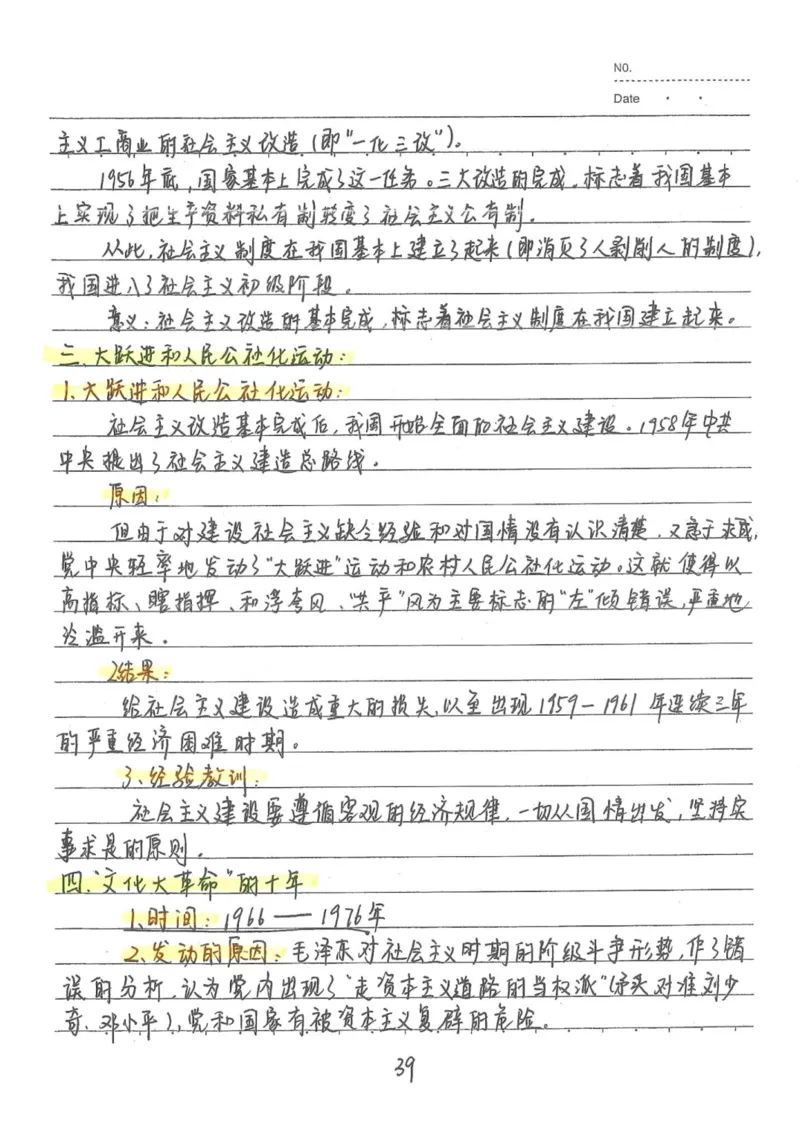 No.
Date
主义工商业的社会主义改造(即"一化三改")。
1956年底,国家基本上完成了这一任务。三大改造的完成,标志着我国基本
上实现了把生产资料私有制转变了社会主义公有制。
从此,社会主义制度在我国基本上建立了起来(即消灭了人剥削人的制度),
我国进入了社会主义初级阶段。
意义:社会主义改造的基本完成,标志着社会主义制度在我国建立起来。
三、大跃进和人民公社化运动:
1.大跃进和人民公社化运动:
社会主义改造基本完成后,我国开始全面的社会主义建设。1958年中共
中央提出了社会主义建造总路线。
原因:
但由于对建设社会主义缺令经验和对国情没有认识清楚,又急于求成,
党中央轻率地发动了"大跃进"运动和农村人民公社化运动。这就使得以
高指标、瞎指挥、和浮夸风、"共产"风为主要标志的"左"倾错误,严重地
泛滥开来。
2结果:
给社会主义建设造成重大的损失,以至出现1959—1961年连续三年
的严重经济困难时期。
3、经验教训:
社会主义建设要遵循客观的经济规律,一切从国情出发,坚持实
事求是的原则。
四."文化大革命"的十年
1、时间:1966——1976年
2、发动的原因:毛泽东对社会主义时期的阶级斗争形势,作了错
误的分析,认为党内出现了"走资本主义道路的当权派"(矛头对准刘少
奇、邓小平),党和国家有被资本主义复辟的危险。
39